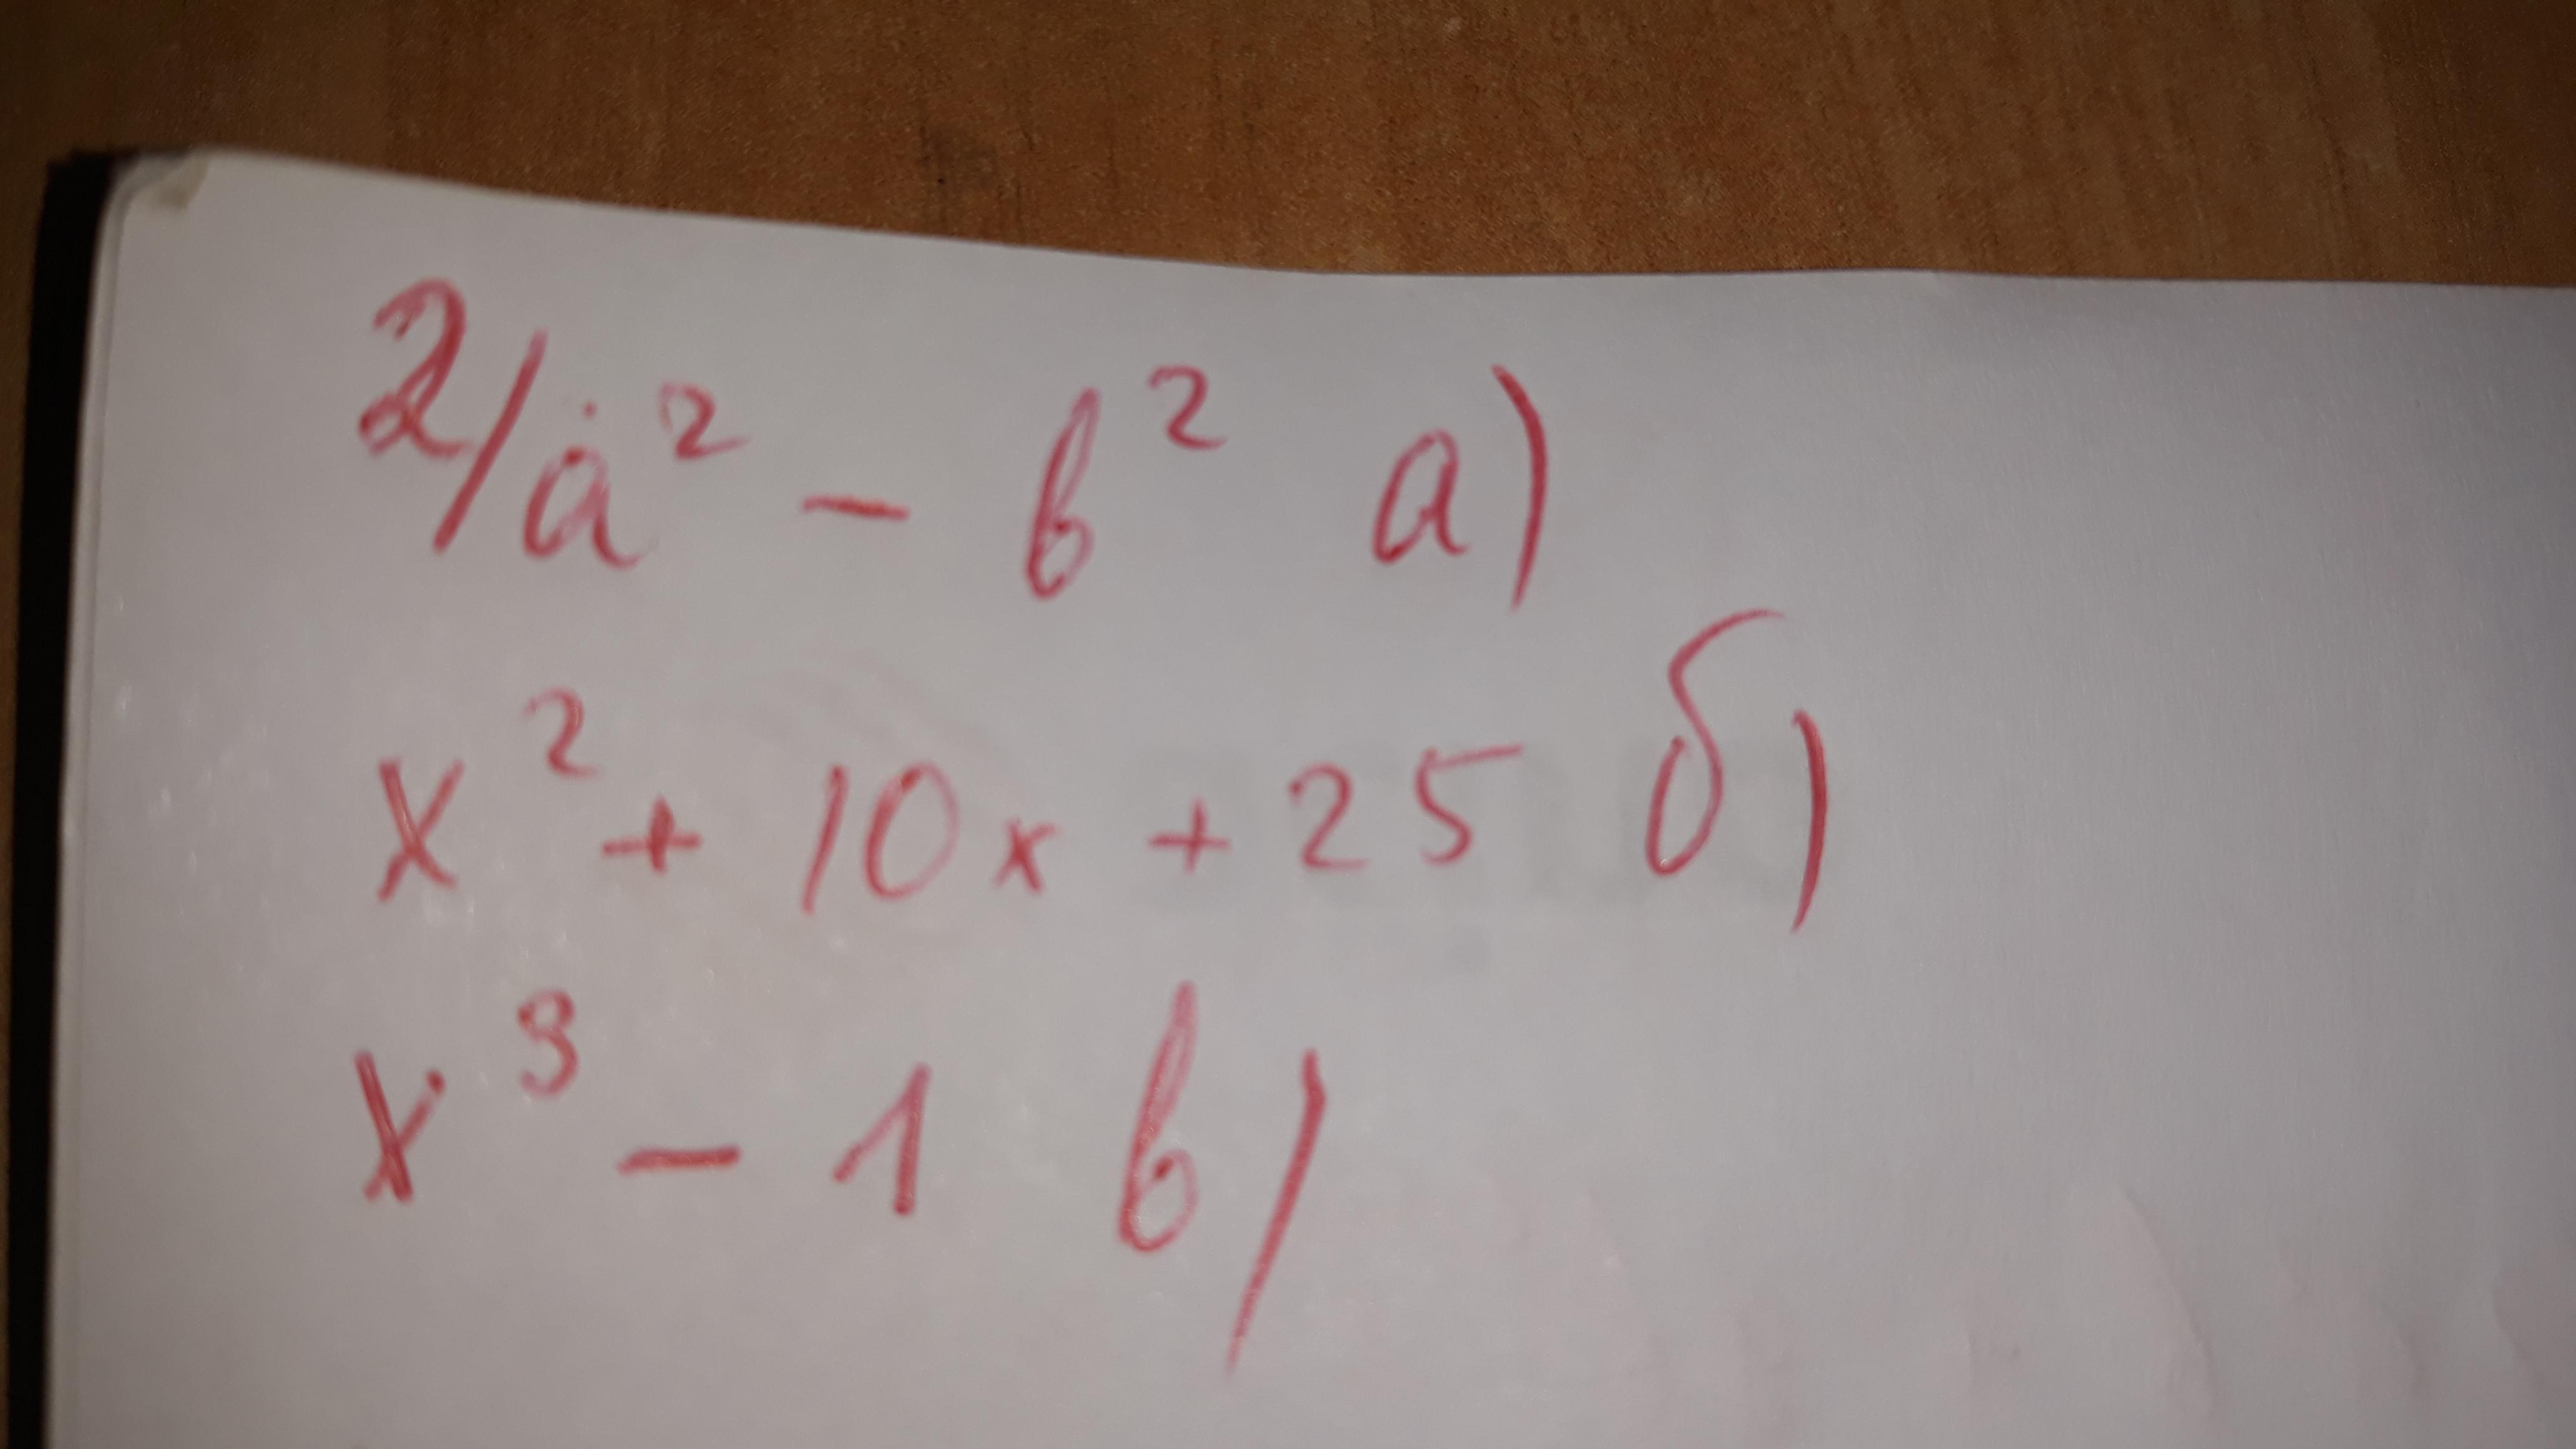 2/a² - b² а)
x² + 10x + 25 б)
x³ - 1 в)